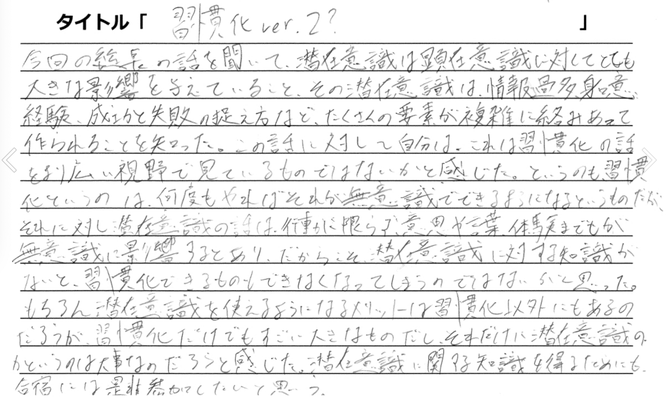 タイトル「 習慣化 ver.2? 」
今回の総長の話を聞いて、潜在意識は顕在意識に対してとても
大きな影響を与えていること、その潜在意識は、情報過多、
経験、成功と失敗の捉え方など、たくさんの要素が複雑に絡みあって
作られることを知った。この話に対して自分は、これは習慣化の話
をより広い視野で見ているものではないかと感じた。というのも習慣
化というのは、何度もやればそれが無意識でできるようになるというものだが、
それに対し潜在意識の話は、行動に限らず意思や言葉、体験までもが
無意識に影響するとあり、だからこそ、潜在意識に対する知識が
ないと、習慣化できるものもできなくなってしまうのではないかと思った。
もちろん潜在意識を使えるようになるメリットは習慣化以外にもあるの
だろうが、習慣化だけでもすごい大きなものだし、それだけに潜在意識の
かというのは大事なのだろうと感じた。潜在意識に関する知識を得るためにも、
合宿には是非参加したいと思う。